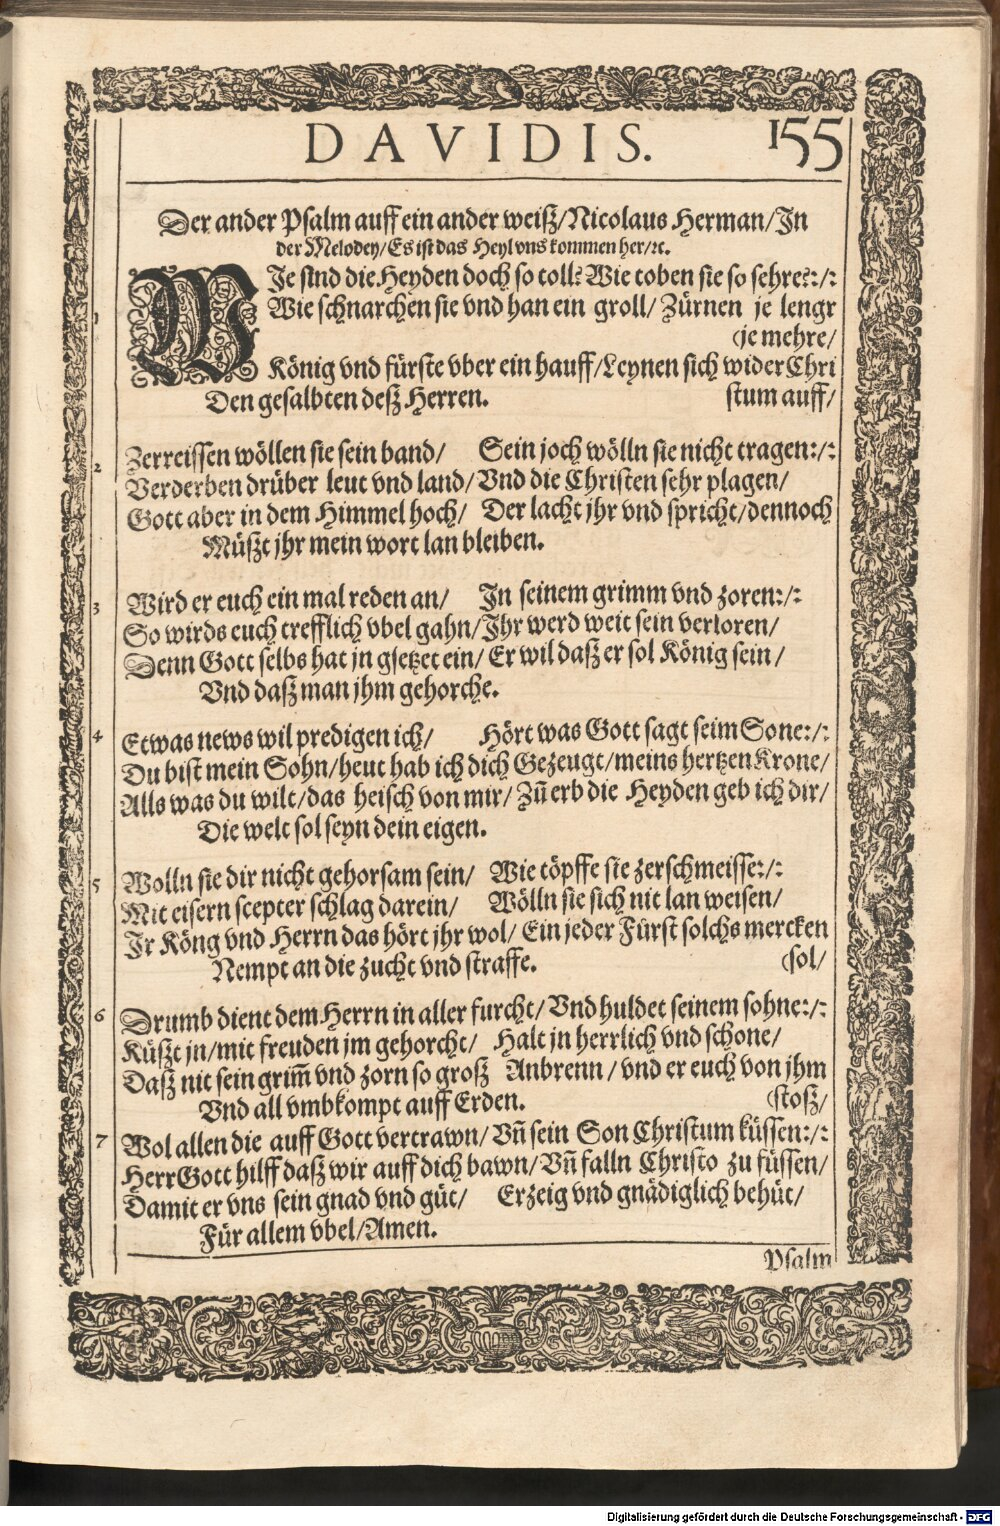 DAVIDIS. 155
Der ander Psalm auff ein ander weiß/Nicolaus Herman/In
der Melodey/Es ist das Heyl vns kommen her/rc.
1 WJe sind die Heyden doch so toll? Wie toben sie so sehre?:/:
Wie schnarchen sie vnd han ein groll/ Zürnen je lengr
(je mehre/
König vnd fürste vber ein hauff/Leynen sich wider Chri
Den gesalbten deß Herren. stum auff/
2 Zerreissen wöllen sie sein band/ Sein joch wölln sie nicht tragen:/:
Verderben drüber leut vnd land/Vnd die Christen sehr plagen/
Gott aber in dem Himmel hoch/ Der lacht jhr vnd spricht/dennoch
Müßt jhr mein wort lan bleiben.
3 Wird er euch ein mal reden an/ In seinem grimm vnd zoren:/:
So wirds euch trefflich vbel gahn/Ihr werd weit sein verloren/
Denn Gott selbs hat jn gsetzet ein/Er wil daß er sol König sein/
Vnd daß man jhm gehorche.
4 Etwas news wil predigen ich/ Hört was Gott sagt seim Sone:/:
Du bist mein Sohn/heut hab ich dich Gezeugt/meins hertzen Krone/
Alls was du wilt/das heisch von mir/Zū erb die Heyden geb ich dir/
Die welt sol seyn dein eigen.
5 Wolln sie dir nicht gehorsam sein/ Wie töpffe sie zerschmeisse:/:
Mit eisern scepter schlag darein/ Wölln sie sich nit lan weisen/
Ir Köng vnd Herrn das hört jhr wol/Ein jeder Fürst solchs mercken
Nempt an die zucht vnd straffe. (sol/
6 Drumb dient dem Herrn in aller furcht/Vnd huldet seinem sohne:/:
Küßt jn/mit freuden jm gehorcht/ Halt jn herrlich vnd schone/
Daß nit sein grim̄ vnd zorn so groß Anbrenn/vnd er euch von jhm
Vnd all vmbkompt auff Erden. (stoß/
7 Wol allen die auff Gott vertrawn/Vn̄ sein Son Christum küssen:/:
Herr Gott hilff daß wir auff dich bawn/Vn̄ falln Christo zu füssen/
Damit er vns sein gnad vnd güt/ Erzeig vnd gnädiglich behüt/
Für allem vbel/Amen.
Psalm
Digitalisierung gefördert durch die Deutsche Forschungsgemeinschaft - DFG